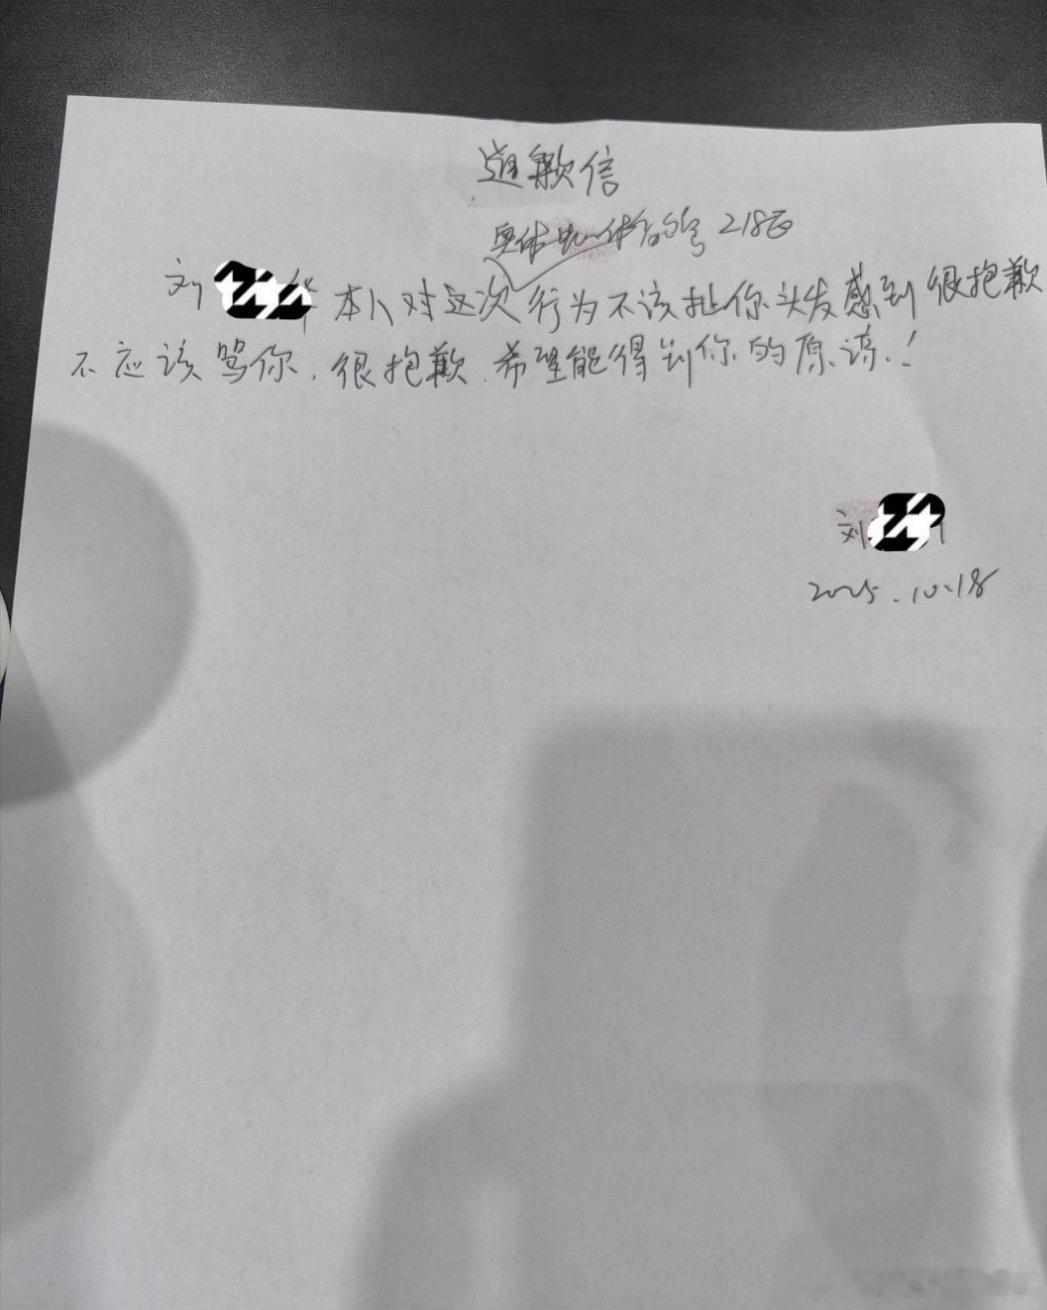 道歉信
奥体中心体育 218区
刘 本人对这次行为不该扯你头发感到很抱歉
不应该骂你,很抱歉.希望能得到你的原谅!
刘
2025.10.18